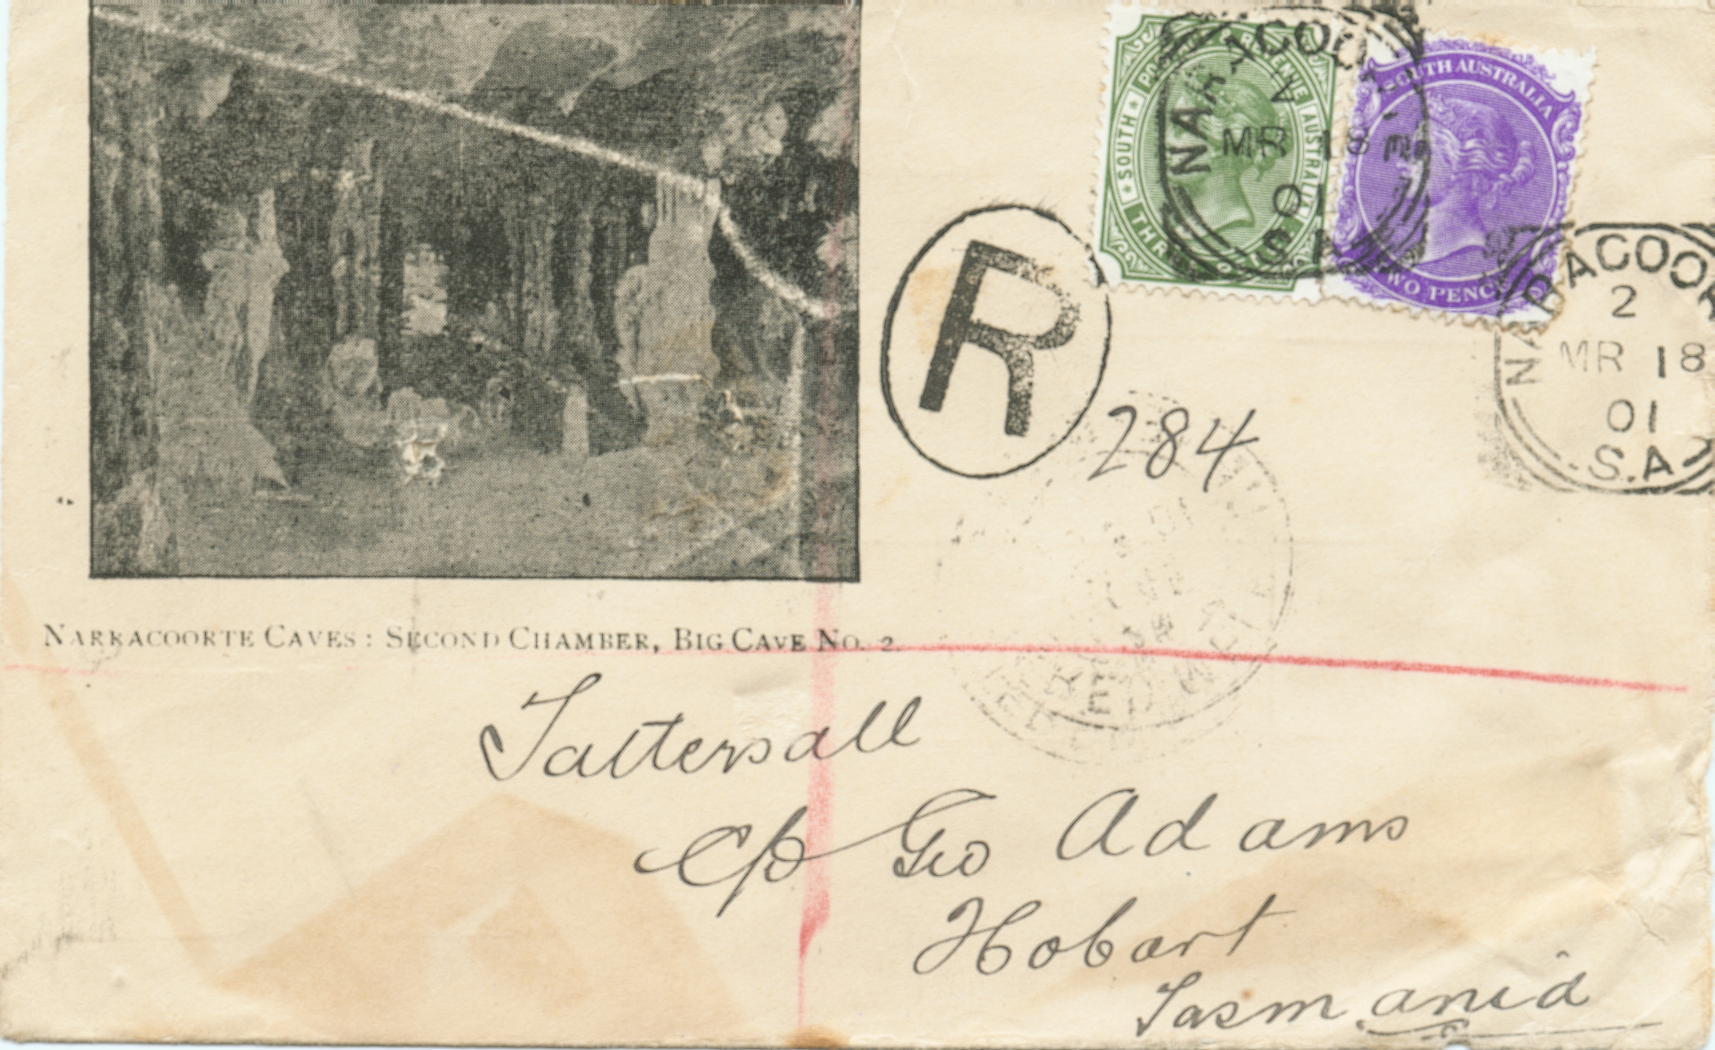 SOUTH AUSTRALIA
TWO PENCE
NARACOOR
A
MR 18
01
NARACOOR
2
MR 18
01
S.A
R
284
NARRACOORTE CAVES: SECOND CHAMBER, BIG CAVE NO. 2.
Tattersall
C/o Geo Adams
Hobart
Tasmania